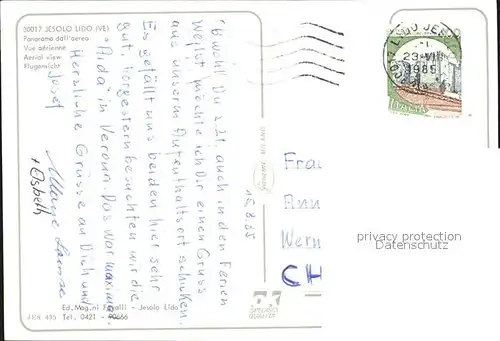 30017 JESOLO LIDO (VE)
Panorama dall'aereo
Vue aérienne
Aerial view
Flugansicht
Obwohl Du z.Zt. auch in den Ferien
weilst möchte ich Dir einen Gruss
aus unserm Aufenthaltsort schicken.
Es gefällt uns beiden hier sehr
gut. Vorgestern besuchten wir die
"Aida" in Verona. Das war maximal.
Herzliche Grüsse an Dich und
Josef
+ Elsbeth
Ed. Mag.ni - Jesolo Lido
JES 435 Tel. 0421 - 90666
LIDO JESOLO
23-VII
1985
ITALIA
15.8.85
MILANO
SPECIAL
QUALITÀ
Frau
Ann
Wern
CH
privacy protection
Datenschutz